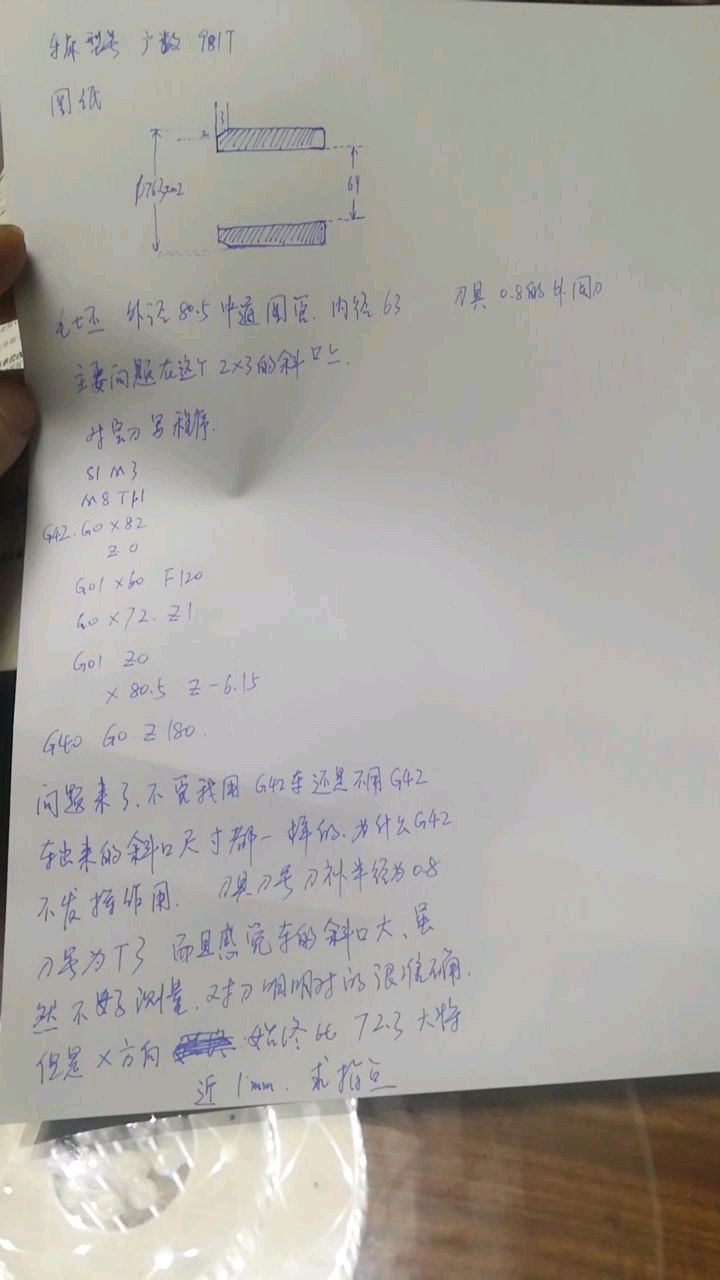 车床型号 广数 981T
图纸
3
2
69
毛坯 外径 80.5 中通圆管. 内径 63 刀具 0.8的外园刀
主要问题在这个 2×3的斜口上.
对完刀写程序.
S1 M3
M8 T11
G42. G0 X82
Z0
G01 X60 F120
G0 X72. Z1
G01 Z0
X80.5 Z-6.15
G40 G0 Z180.
问题来了, 不管我用 G42车还是不用G42
车出来的斜口尺寸都一样的. 为什么G42
不发挥作用. 刀具刀号 刀补半径为 0.8
刀号为T3 而且感觉车的斜口大、虽
然不好测量. 对刀明明对的很准确.
但是 X方向 始终比 72.3 大将
近 1mm. 求指点